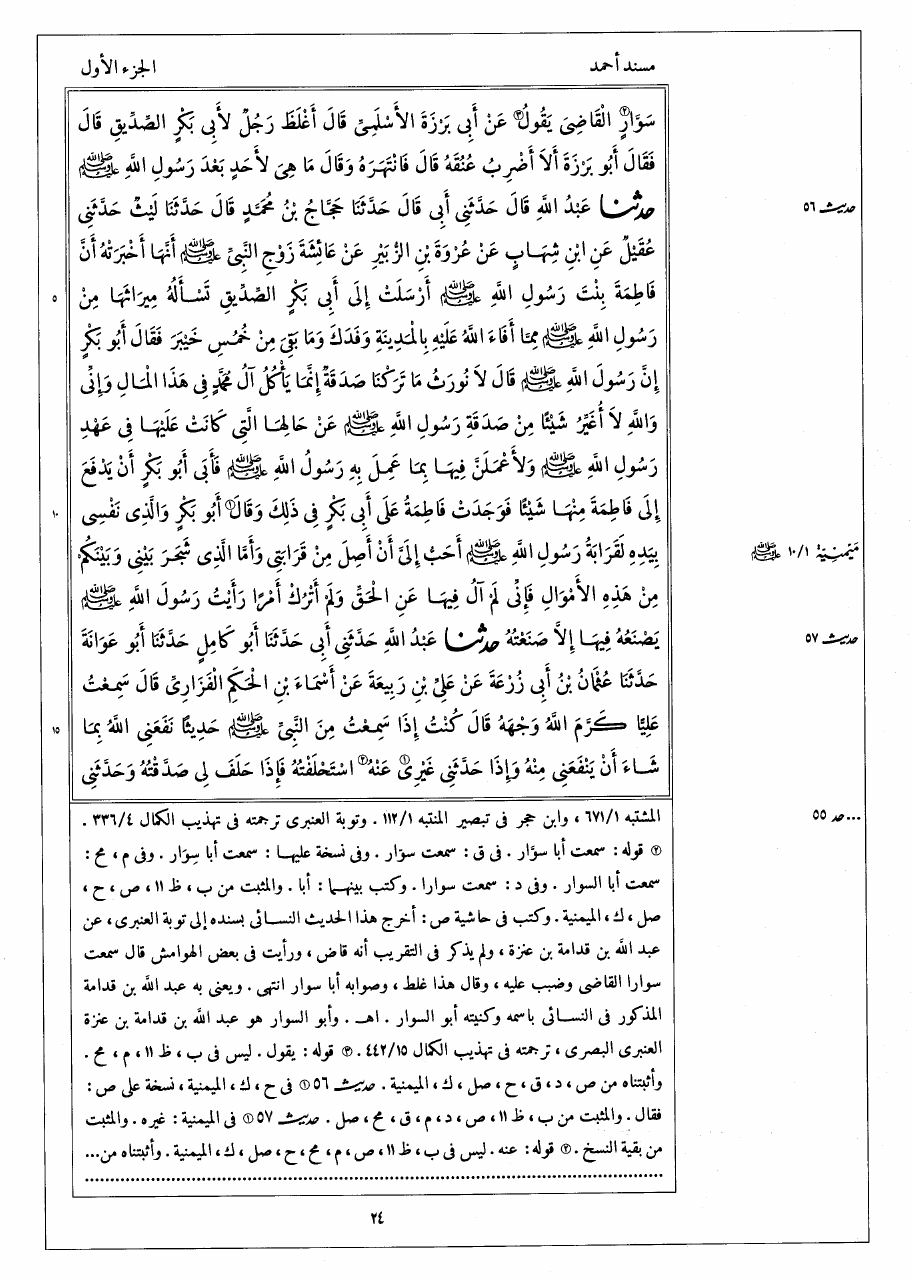 مسند أحمد الجزء الأول
سَوَّارٍ② الْقَاضِىَ يَقُولُ③ عَنْ أَبِى بَرْزَةَ الأَسْلَمِىِّ قَالَ أَغْلَظَ رَجُلٌ لأَبِى بَكْرٍ الصِّدِّيقِ قَالَ
فَقَالَ أَبُو بَرْزَةَ أَلاَ أَضْرِبُ عُنُقَهُ قَالَ فَانْتَهَرَهُ وَقَالَ مَا هِىَ لأَحَدٍ بَعْدَ رَسُولِ اللَّهِ ﷺ
حديث ٥٦ حدثنا عَبْدُ اللَّهِ قَالَ حَدَّثَنِى أَبِى قَالَ حَدَّثَنَا حَجَّاجُ بْنُ مُحَمَّدٍ قَالَ حَدَّثَنَا لَيْثٌ حَدَّثَنِى
عُقَيْلٌ عَنِ ابْنِ شِهَابٍ عَنْ عُرْوَةَ بْنِ الزُّبَيْرِ عَنْ عَائِشَةَ زَوْجِ النَّبِىِّ ﷺ أَنَّهَا أَخْبَرَتْهُ أَنَّ
فَاطِمَةَ بِنْتَ رَسُولِ اللَّهِ ﷺ أَرْسَلَتْ إِلَى أَبِى بَكْرٍ الصِّدِّيقِ تَسْأَلُهُ مِيرَاثَهَا مِنْ ٥
رَسُولِ اللَّهِ ﷺ مِمَّا أَفَاءَ اللَّهُ عَلَيْهِ بِالْمَدِينَةِ وَفَدَكَ وَمَا بَقِىَ مِنْ خُمُسِ خَيْبَرَ فَقَالَ أَبُو بَكْرٍ
إِنَّ رَسُولَ اللَّهِ ﷺ قَالَ لاَ نُورَثُ مَا تَرَكْنَا صَدَقَةٌ إِنَّمَا يَأْكُلُ آلُ مُحَمَّدٍ فِى هَذَا الْمَالِ وَإِنِّى
وَاللَّهِ لاَ أُغَيِّرُ شَيْئًا مِنْ صَدَقَةِ رَسُولِ اللَّهِ ﷺ عَنْ حَالِهَا الَّتِى كَانَتْ عَلَيْهَا فِى عَهْدِ
رَسُولِ اللَّهِ ﷺ وَلأَعْمَلَنَّ فِيهَا بِمَا عَمِلَ بِهِ رَسُولُ اللَّهِ ﷺ فَأَبَى أَبُو بَكْرٍ أَنْ يَدْفَعَ
إِلَى فَاطِمَةَ مِنْهَا شَيْئًا فَوَجَدَتْ فَاطِمَةُ عَلَى أَبِى بَكْرٍ فِى ذَلِكَ وَقَالَ① أَبُو بَكْرٍ وَالَّذِى نَفْسِى ١٠
ميمنية ١٠/١ ﷺ بِيَدِهِ لَقَرَابَةُ رَسُولِ اللَّهِ ﷺ أَحَبُّ إِلَىَّ أَنْ أَصِلَ مِنْ قَرَابَتِى وَأَمَّا الَّذِى شَجَرَ بَيْنِى وَبَيْنَكُمْ
مِنْ هَذِهِ الأَمْوَالِ فَإِنِّى لَمْ آلُ فِيهَا عَنِ الْحَقِّ وَلَمْ أَتْرُكْ أَمْرًا رَأَيْتُ رَسُولَ اللَّهِ ﷺ
حديث ٥٧ يَصْنَعُهُ فِيهَا إِلاَّ صَنَعْتُهُ حدثنا عَبْدُ اللَّهِ حَدَّثَنِى أَبِى حَدَّثَنَا أَبُو كَامِلٍ حَدَّثَنَا أَبُو عَوَانَةَ
حَدَّثَنَا عُثْمَانُ بْنُ أَبِى زُرْعَةَ عَنْ عَلِىِّ بْنِ رَبِيعَةَ عَنْ أَسْمَاءَ بْنِ الْحَكَمِ الْفَزَارِىِّ قَالَ سَمِعْتُ
عَلِيًّا كَرَّمَ اللَّهُ وَجْهَهُ قَالَ كُنْتُ إِذَا سَمِعْتُ مِنَ النَّبِىِّ ﷺ حَدِيثًا نَفَعَنِى اللَّهُ بِمَا ١٥
شَاءَ أَنْ يَنْفَعَنِى مِنْهُ وَإِذَا حَدَّثَنِى غَيْرِى① عَنْهُ② اسْتَحْلَفْتُهُ فَإِذَا حَلَفَ لِى صَدَّقْتُهُ وَحَدَّثَنِى
...حد ٥٥ المشتبه ٦٧١/١ ، وابن حجر فى تبصير المنتبه ١١٢/١ . وتوبة العنبرى ترجمته فى تهذيب الكمال ٣٣٦/٤ .
② قوله : سمعت أبا سوَّار . فى ق : سمعت سوّار . وفى نسخة عليها : سمعت أبا سِوَار . وفى م ، مح :
سمعت أبا السوار . وفى د : سمعت سوارا . وكتب بينهما : أبا . والمثبت من ب ، ظ ١١ ، ص ، ح ،
صل ، ك ، الميمنية . وكتب فى حاشية ص : أخرج هذا الحديث النسائى بسنده إلى توبة العنبرى ، عن
عبد الله بن قدامة بن عنزة ، ولم يذكر فى التقريب أنه قاض ، ورأيت فى بعض الهوامش قال سمعت
سوارا القاضى وضبب عليه ، وقال هذا غلط ، وصوابه أبا سوار انتهى . ويعنى به عبد الله بن قدامة
المذكور فى النسائى باسمه وكنيته أبو السوار . اهـ . وأبو السوار هو عبد الله بن قدامة بن عنزة
العنبرى البصرى ، ترجمته فى تهذيب الكمال ٤٤٢/١٥ . ③ قوله : يقول . ليس فى ب ، ظ ١١ ، م ، مح .
وأثبتناه من ص ، د ، ق ، ح ، صل ، ك ، الميمنية . حديث ٥٦ ① فى ح ، ك ، الميمنية ، نسخة على ص :
فقال . والمثبت من ب ، ظ ١١ ، ص ، د ، م ، ق ، مح ، صل . حديث ٥٧ ① فى الميمنية : غيره . والمثبت
من بقية النسخ . ② قوله : عنه . ليس فى ب ، ظ ١١ ، ص ، م ، مح ، ح ، صل ، ك ، الميمنية . وأثبتناه من...
٢٤